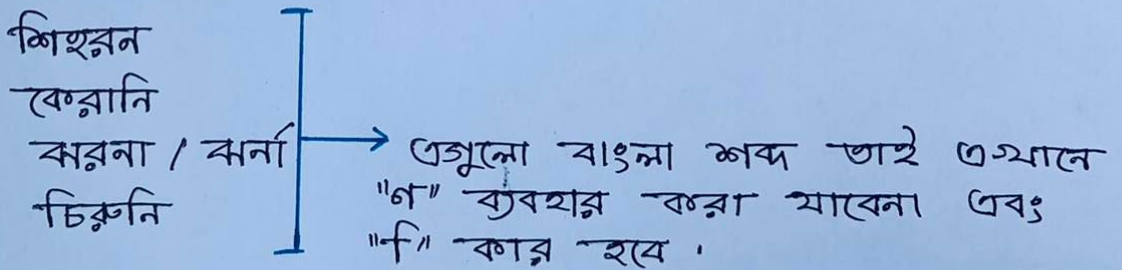 শিহরন
কেরানি
ঝরনা / ঝর্না
চিরুনি
এগুলো বাংলা শব্দ তাই এখানে
"ণ" ব্যবহার করা যাবেনা এবং
"ি" কার হবে ।